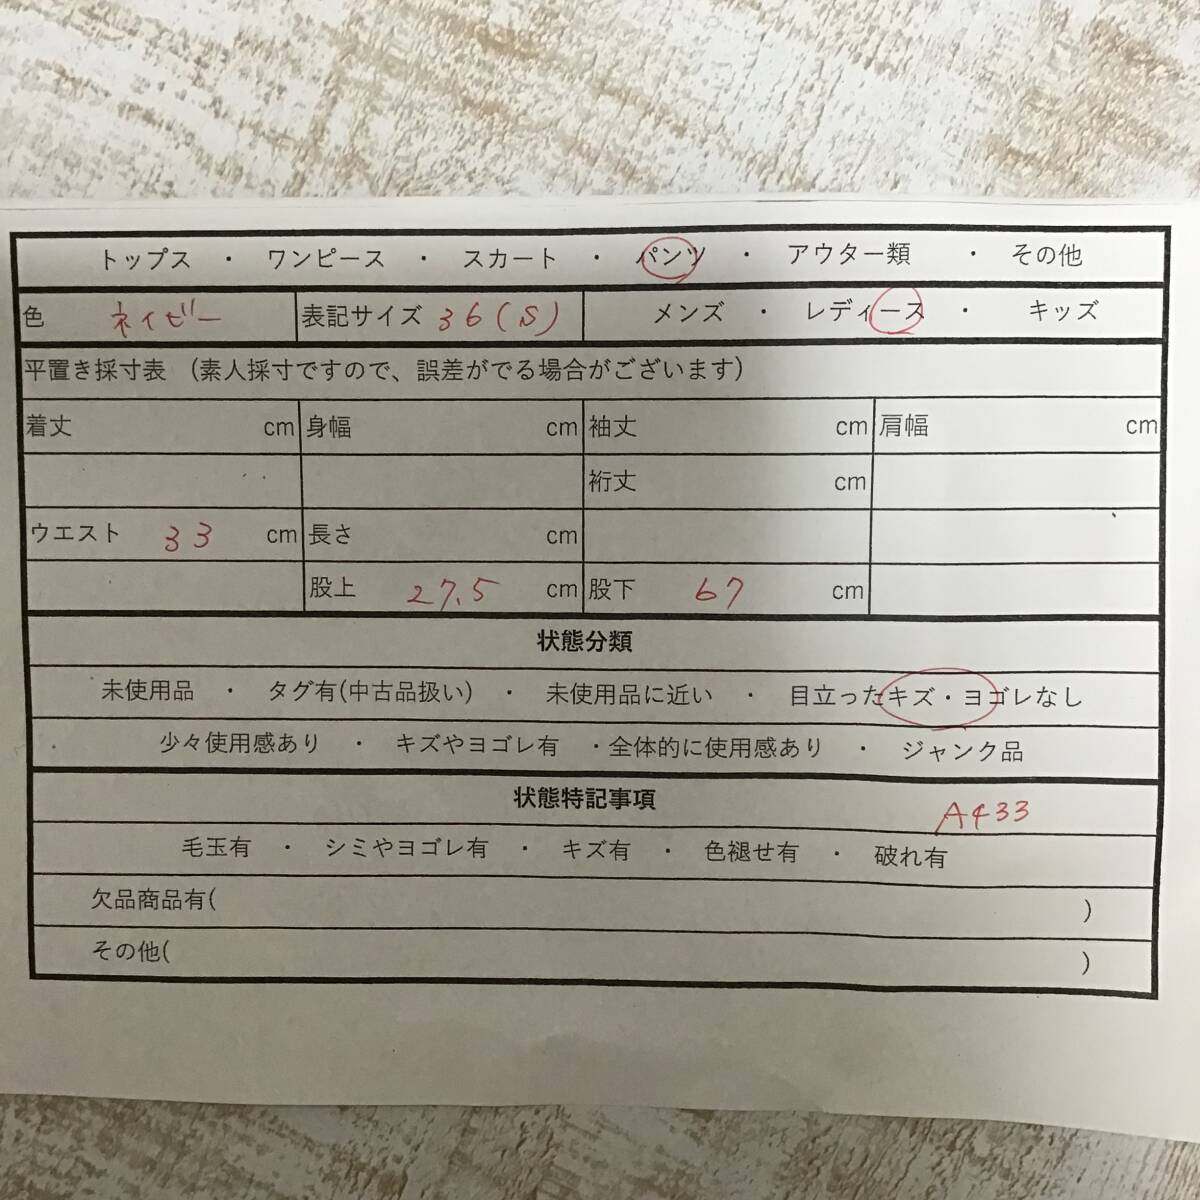 トップス ・ ワンピース ・ スカート ・ パンツ ・ アウター類 ・ その他
色 ネイビー 表記サイズ 36(S) メンズ ・ レディース ・ キッズ
平置き採寸表 (素人採寸ですので、誤差がでる場合がございます)
着丈 cm 身幅 cm 袖丈 cm 肩幅 cm
裄丈 cm
ウエスト 33 cm 長さ cm
股上 27.5 cm 股下 67 cm
状態分類
未使用品 ・ タグ有(中古品扱い) ・ 未使用品に近い ・ 目立ったキズ・ヨゴレなし
少々使用感あり ・ キズやヨゴレ有 ・全体的に使用感あり ・ ジャンク品
状態特記事項 A433
毛玉有 ・ シミやヨゴレ有 ・ キズ有 ・ 色褪せ有 ・ 破れ有
欠品商品有( )
その他( )